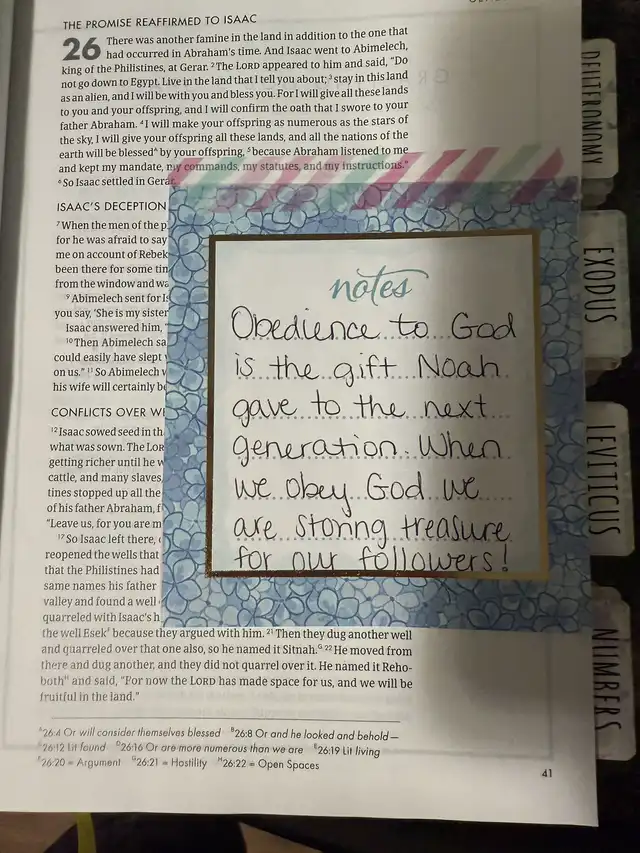 THE PROMISE REAFFIRMED TO ISAAC
26 There was another famine in the land in addition to the one that
had occurred in Abraham's time. And Isaac went to Abimelech,
king of the Philistines, at Gerar. ²The LORD appeared to him and said, "Do
not go down to Egypt. Live in the land that I tell you about; ³stay in this land
as an alien, and I will be with you and bless you. For I will give all these lands
to you and your offspring, and I will confirm the oath that I swore to your
father Abraham. ⁴I will make your offspring as numerous as the stars of
the sky, I will give your offspring all these lands, and all the nations of the
earth will be blessedᴬ by your offspring, ⁵because Abraham listened to me
and kept my mandate, my commands, my statutes, and my instructions."
⁶So Isaac settled in Gerar.
ISAAC'S DECEPTION
⁷When the men of the p
for he was afraid to say
me on account of Rebek
been there for some tin
from the window and wa
⁹Abimelech sent for Is
you say, 'She is my sister
Isaac answered him, "
¹⁰Then Abimelech sa
could easily have slept
on us." ¹¹So Abimelech w
his wife will certainly be
CONFLICTS OVER WE
¹²Isaac sowed seed in th
what was sown. The LOR
getting richer until he w
cattle, and many slaves,
tines stopped up all the
of his father Abraham, f
"Leave us, for you are m
¹⁷So Isaac left there, c
reopened the wells that
that the Philistines had
same names his father
valley and found a well
quarreled with Isaac's h
the well Esekᶠ because they argued with him. ²¹Then they dug another well
and quarreled over that one also, so he named it Sitnah.ᴳ ²²He moved from
there and dug another, and they did not quarrel over it. He named it Reho-
bothᴴ and said, "For now the LORD has made space for us, and we will be
fruitful in the land."
ᴬ26:4 Or will consider themselves blessed ᴮ26:8 Or and he looked and behold—
ᶜ26:12 Lit found ᴰ26:16 Or are more numerous than we are ᴱ26:19 Lit living
ᶠ26:20 = Argument ᴳ26:21 = Hostility ᴴ26:22 = Open Spaces
41
notes
Obedience to God
is the gift Noah
gave to the next
generation. When
we obey God we
are storing treasure
for our followers!
DEUTERONOMY
EXODUS
LEVITICUS
NUMBERS